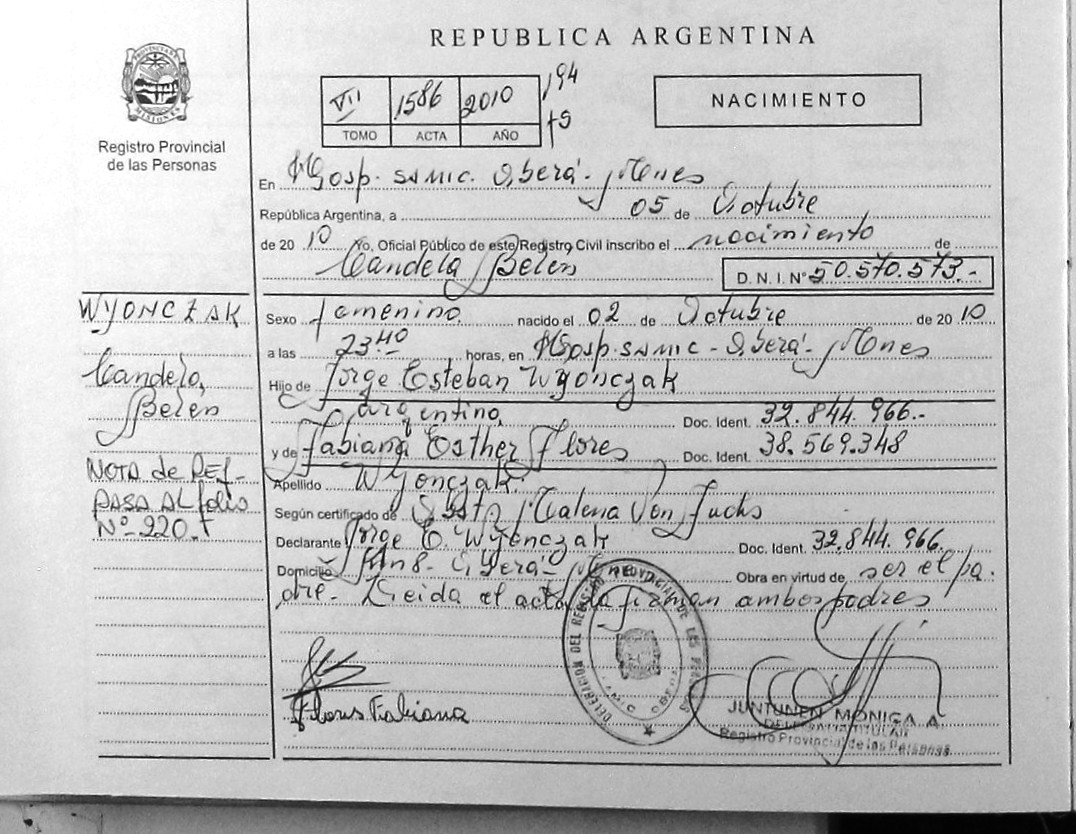 REPUBLICA ARGENTINA
PROVINCIA DE MISIONES
Registro Provincial
de las Personas
VII 1586 2010 194
TOMO ACTA AÑO
NACIMIENTO
En Hosp. SAMIC. Oberá - Mnes
República Argentina, a 05 de Octubre
de 20 10 Yo, Oficial Público de este Registro Civil inscribo el nacimiento de
Candela Belén D.N.I. Nº 50.570.573.-
WYONCZAK
Candela,
Belen
NOTA de REF-
PASA AL folio
Nº 220.
Sexo femenino nacido el 02 de Octubre de 20 10
a las 23 40 horas, en Hosp. SAMIC - Oberá - Mnes
Hijo de Jorge Esteban Wyonczak
argentino, Doc. Ident. 32.844.966.-
y de Fabiana Esther Flores Doc. Ident. 38.569.348
Apellido Wyonczak.
Según certificado de Malena Von Fuchs
Declarante Jorge E. Wyonczak Doc. Ident. 32.844.966.
Domicilio Km 8 - Oberá - Obra en virtud de ser el pa.
dre. Leida el acta la firman ambos padres
Flores Fabiana
DELEGACION DEL REGISTRO PROVINCIAL DE LAS PERSONAS
JUNTUNEN MONICA A.
DELEGADA TITULAR
Registro Provincial de las Personas